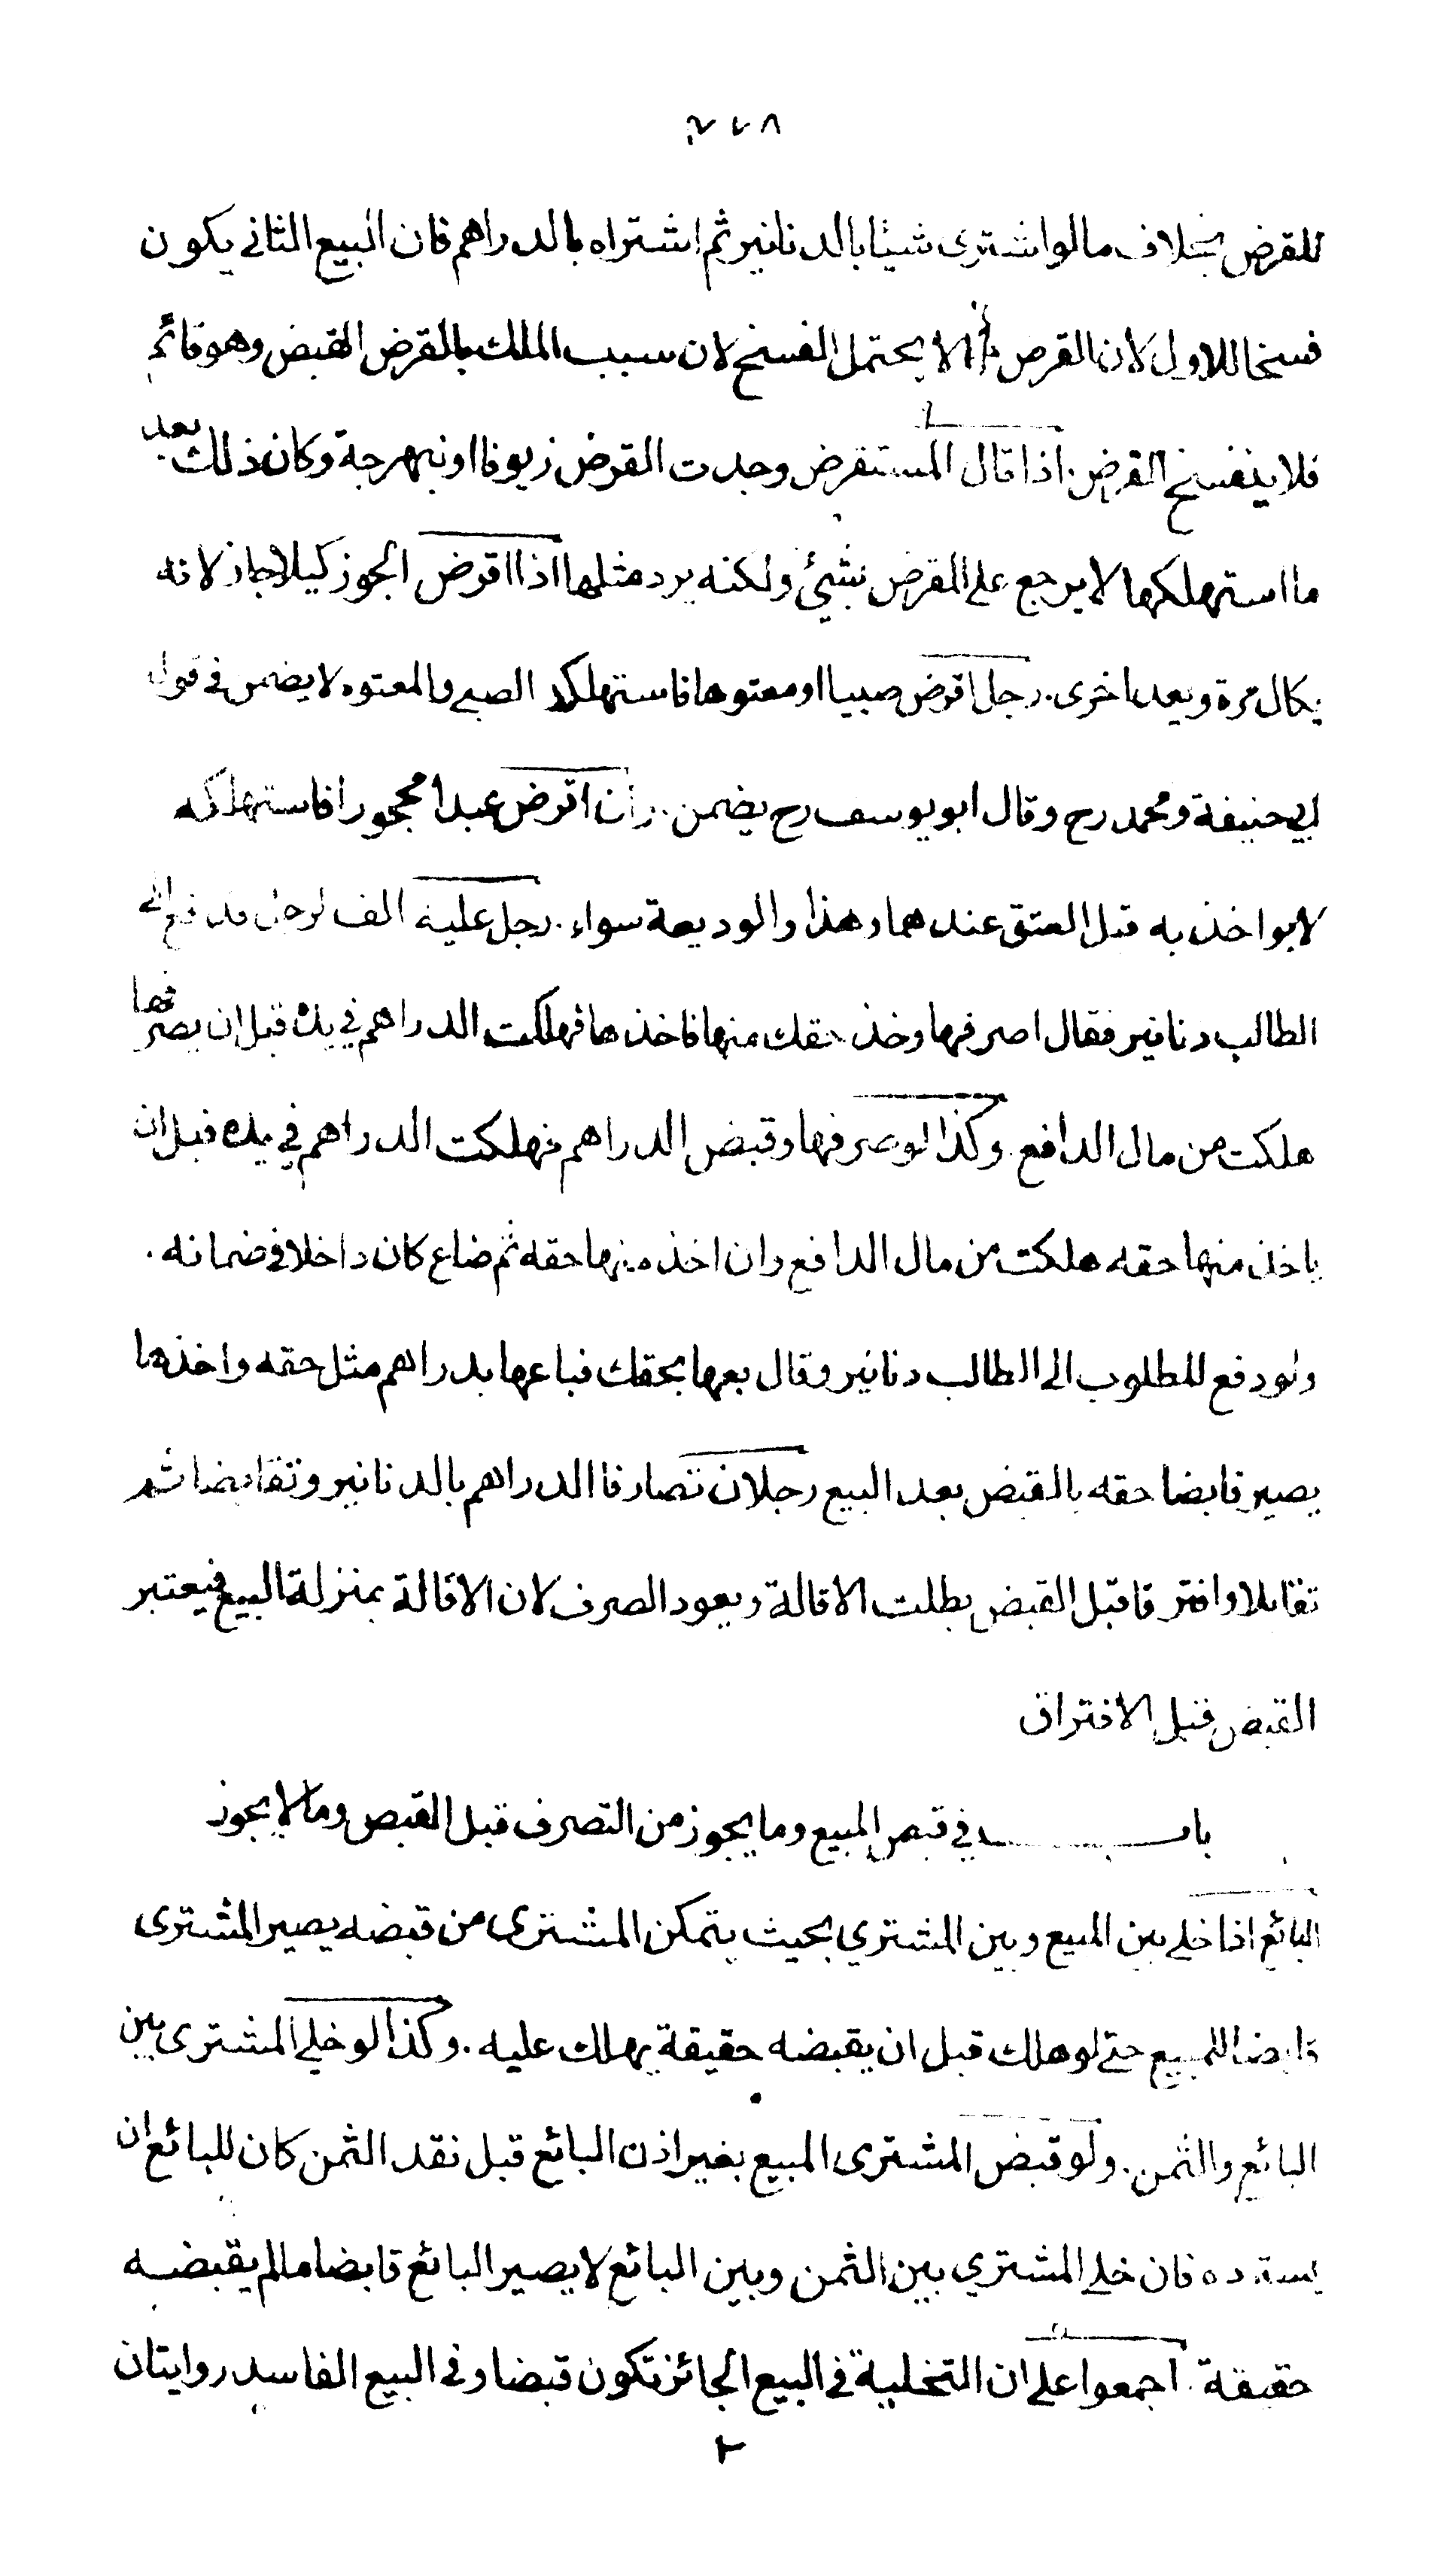 ٤٧٨
للقرض بخلاف ما لو اشترى شيئا بالدنانير ثم اشتراه بالدراهم فان البيع الثاني يكون
فسخا للاول لان القرض لا يحتمل الفسخ لان سبب الملك بالقرض القبض وهو قائم
فلا ينفسخ القرض . اذا قال المستقرض وجدت القرض زيوفا او نبهرجة وكان ذلك بعد
ما استهلكها لا يرجع على المقرض بشيئ ولكنه يرد مثلها اذا اقرض الجوز كيلا جاز لانه
يكال مرة ويعد اخرى . رجل اقرض صبيا او معتوها فاستهلكه الصبي والمعتوه لا يضمن في قول
ابي حنيفة ومحمد رح وقال ابو يوسف رح يضمن . وان اقرض عبدا محجورا فاستهلكه
لا يواخذ به قبل العتق عندهما وهذا والوديعة سواء . رجل عليه الف لرجل فدفع الى
الطالب دنانير فقال اصرفها وخذ حقك منها فاخذها فهلكت الدراهم في يده قبل ان يصرفها
هلكت من مال الدافع . وكذا لو صرفها وقبض الدراهم فهلكت الدراهم في يده قبل ان
ياخذ منها حقه هلكت من مال الدافع وان اخذ منها حقه ثم ضاع كان داخلا في ضمانه .
ولو دفع المطلوب الى الطالب دنانير وقال بعها بحقك فباعها بدراهم مثل حقه واخذها
يصير قابضا حقه بالقبض بعد البيع رجلان تصارفا الدراهم بالدنانير وتقابضا ثم
تقايلا وافترقا قبل القبض بطلت الاقالة ويعود الصرف لان الاقالة بمنزلة البيع فيعتبر
القبض قبل الافتراق
باب في قبض المبيع وما يجوز من التصرف قبل القبض وما لا يجوز
البائع اذا خلى بين المبيع وبين المشتري بحيث يتمكن المشترى من قبضه يصير المشترى
قابضا للمبيع حتى لو هلك قبل ان يقبضه حقيقة يهلك عليه . وكذا لو خلى المشترى بين
البائع والثمن . ولو قبض المشترى المبيع بغير اذن البائع قبل نقد الثمن كان للبائع ان
يسترده فان خلى المشتري بين الثمن وبين البائع لا يصير البائع قابضا ما لم يقبضه
حقيقة . اجمعوا على ان التخلية في البيع الجائز تكون قبضا وفي البيع الفاسد روايتان
٢